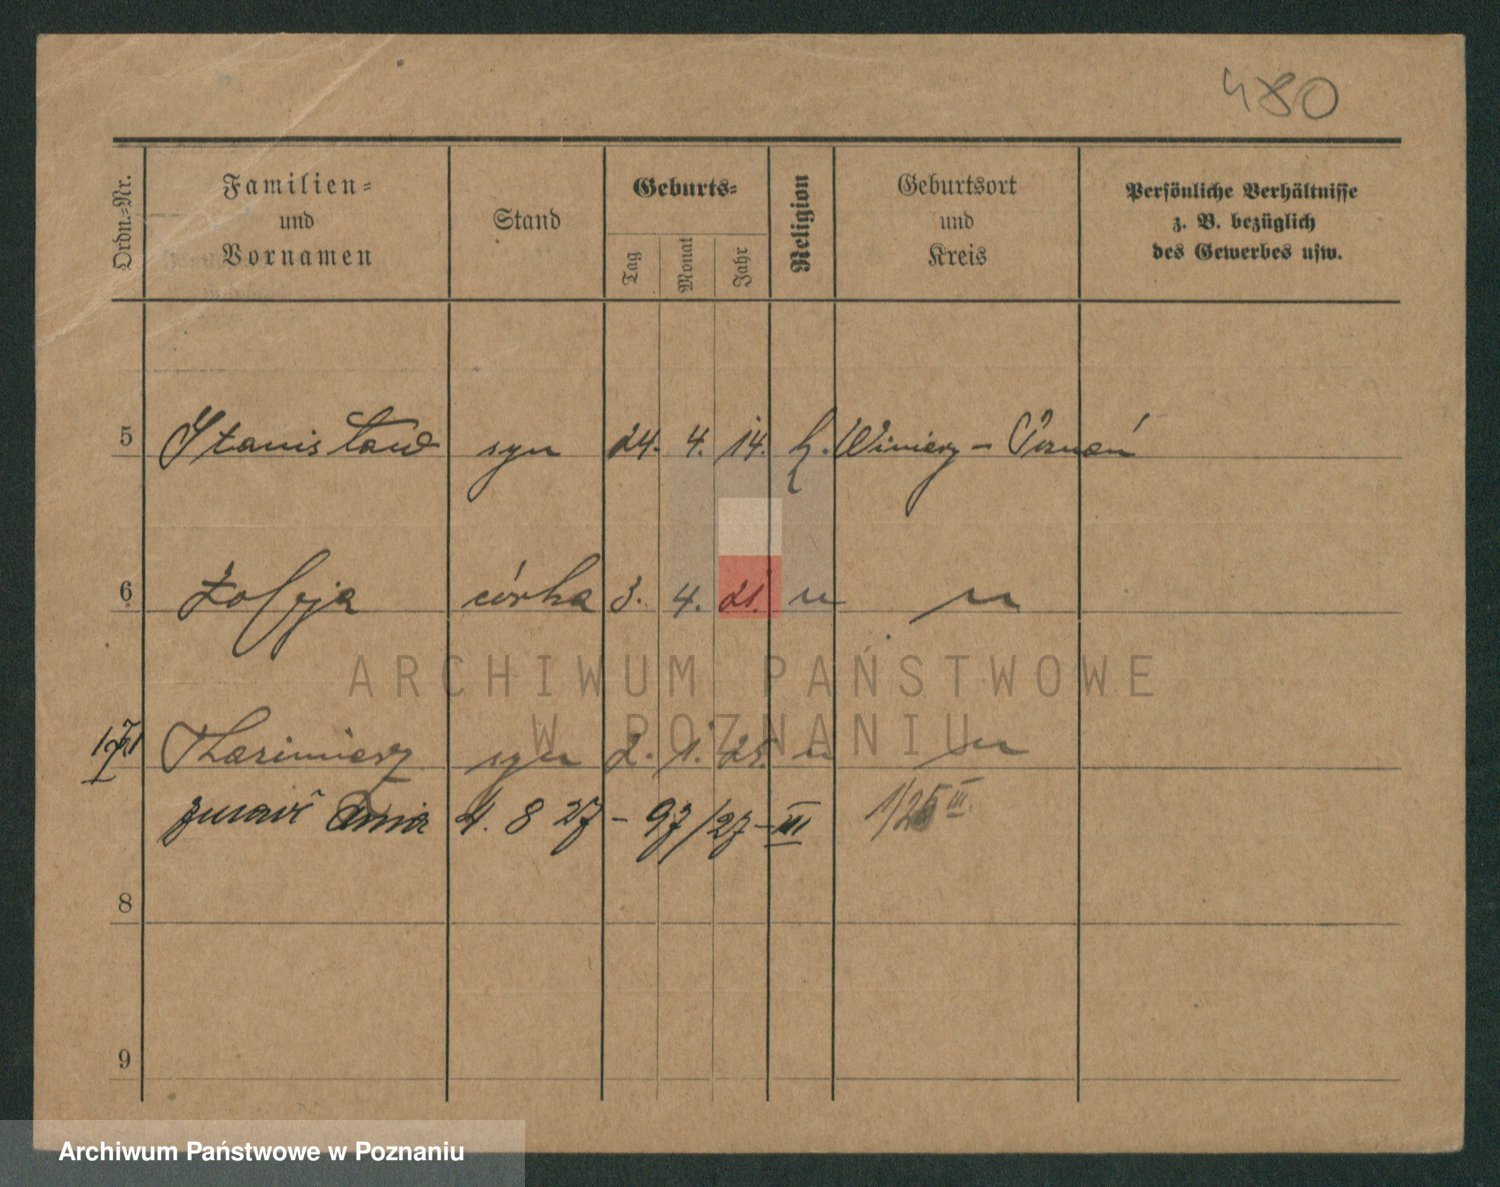 480
Ordn.=Nr. Familien= und Vornamen Stand Geburts= Tag Monat Jahr Religion Geburtsort und Kreis Persönliche Verhältnisse z. B. bezüglich des Gewerbes usw.
5 Stanisław syn 24. 4. 14. k. Winiary - Poznań
6 Zofja córka 3. 4. 21. " "
Kazimierz syn 2. 1. 25. " "
zmarł 4. 8 27 - 97/27 - III 1/25 III.
8
9
ARCHIWUM PAŃSTWOWE
W POZNANIU
Archiwum Państwowe w Poznaniu